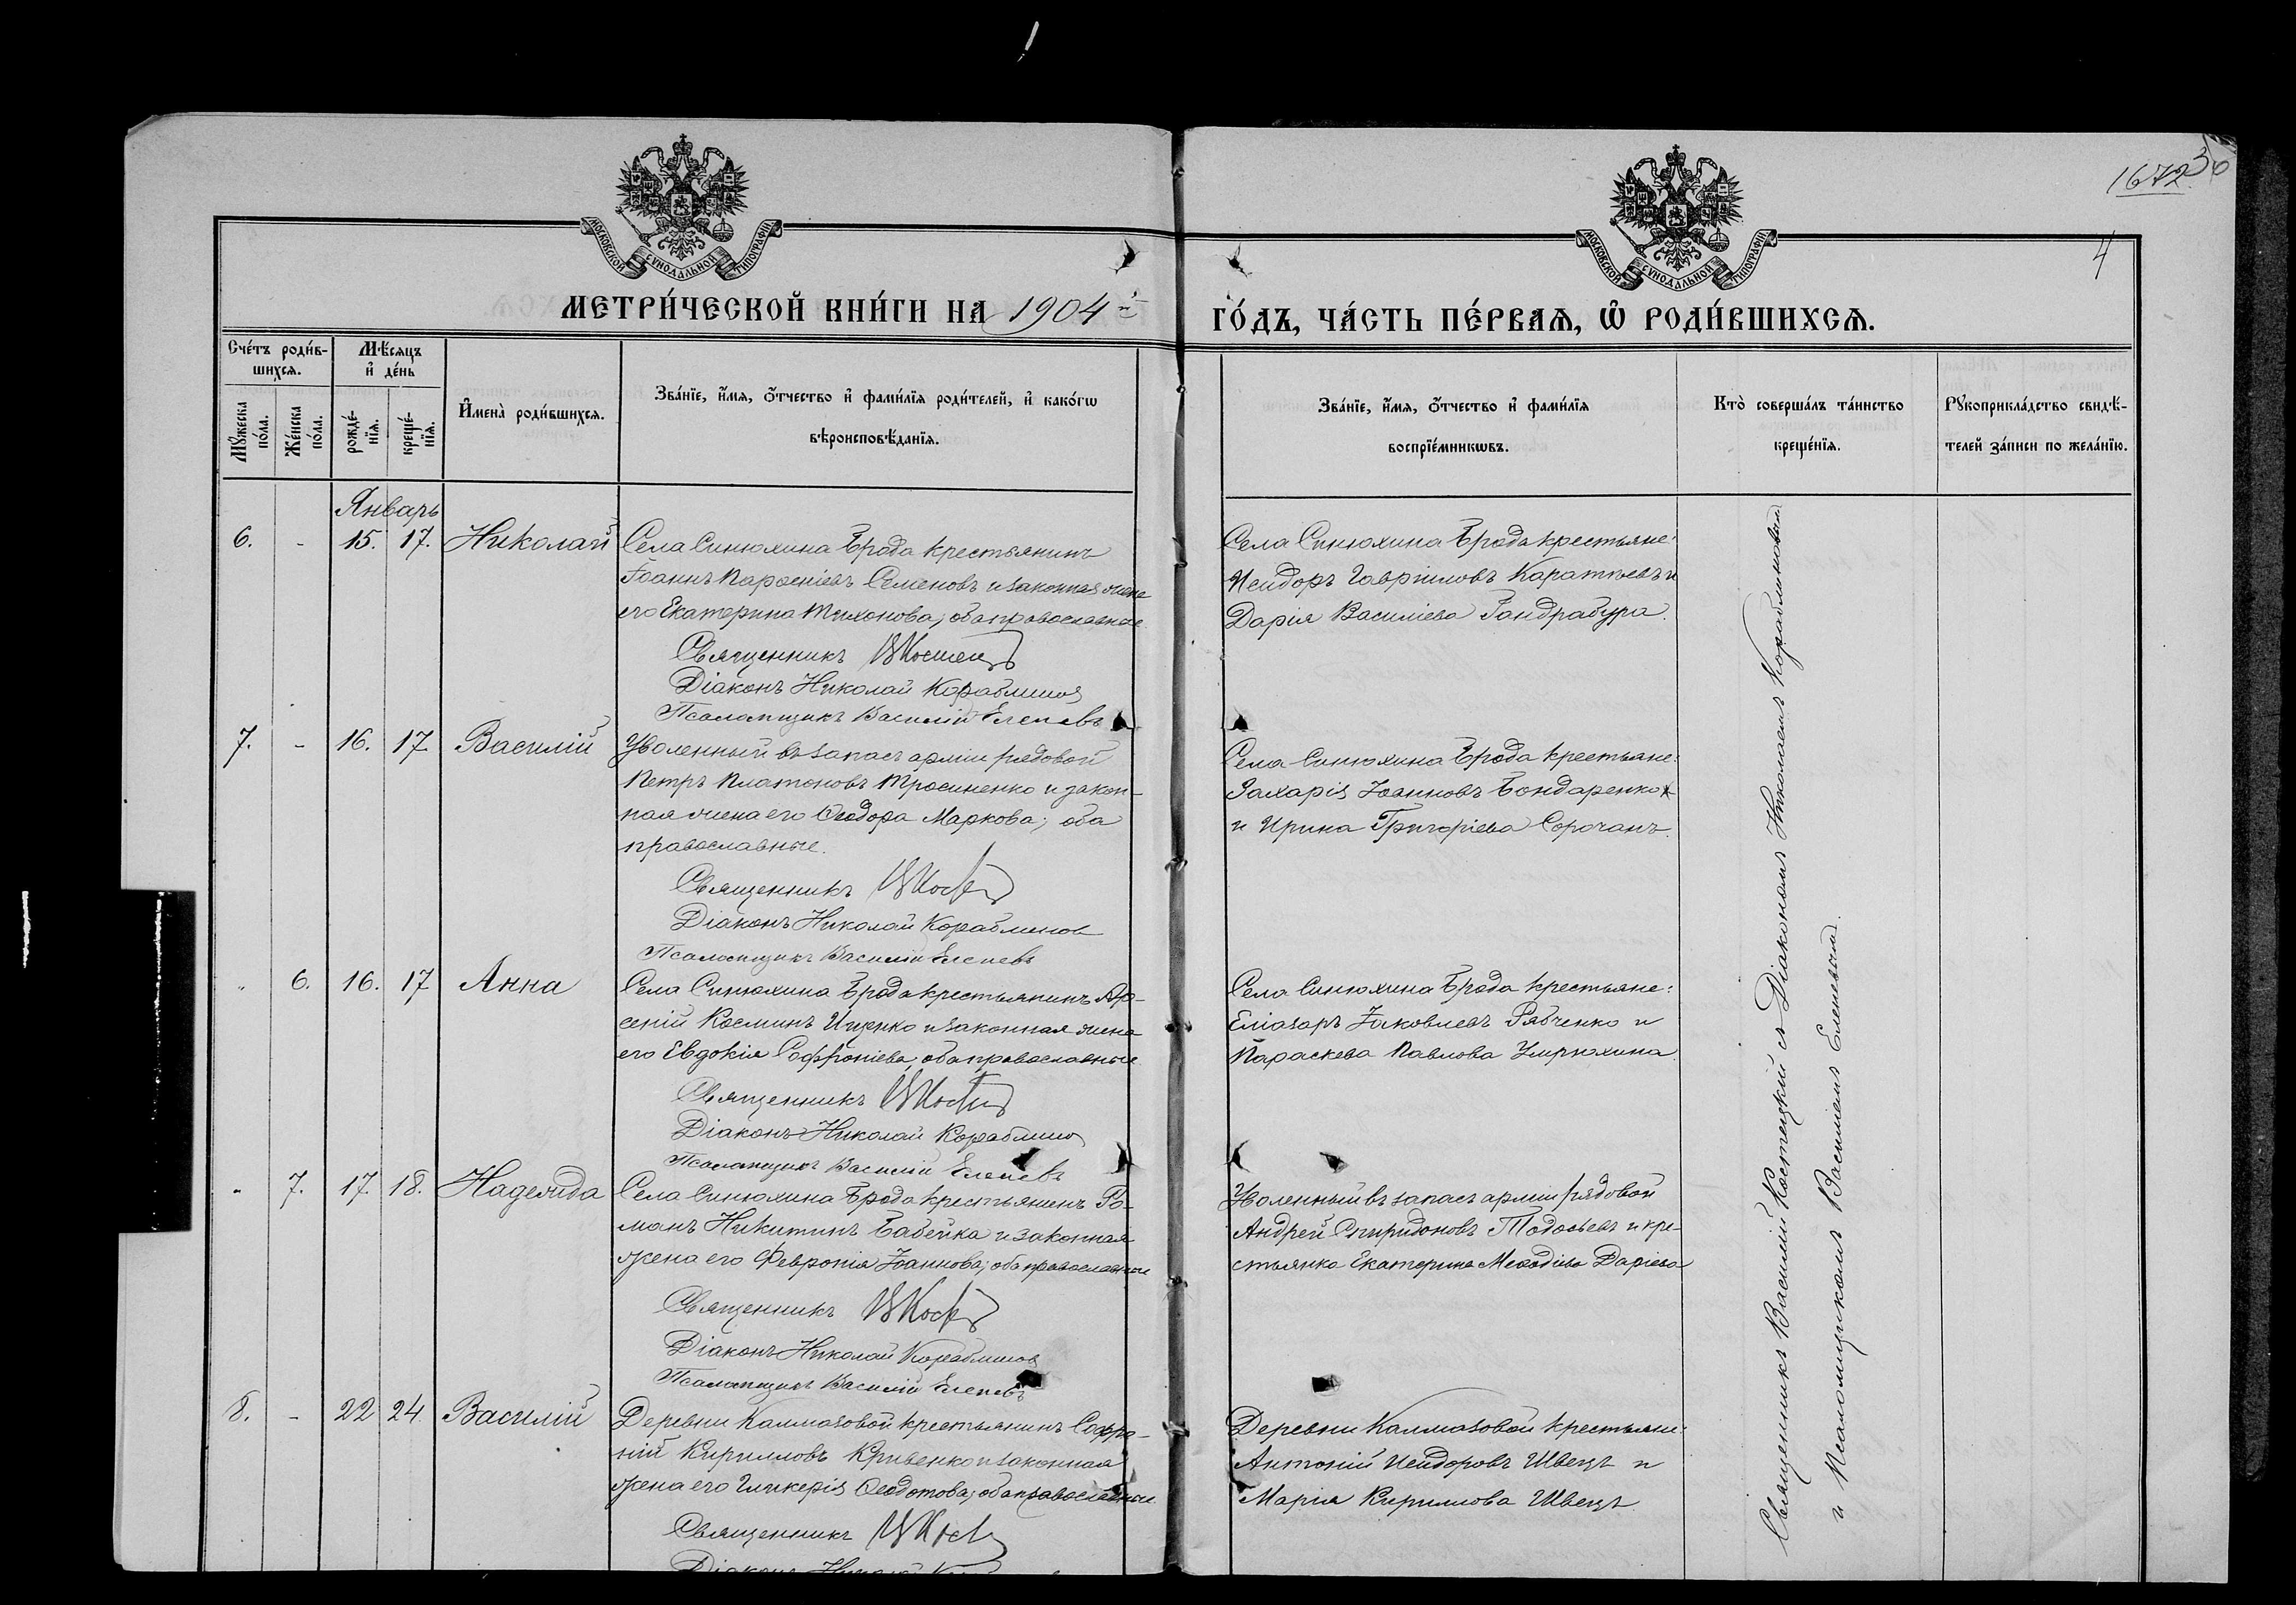 1672
36
4
МОСКОВСКОЙ СѴНОДАЛЬНОЙ ТИПОГРАФІИ
МОСКОВСКОЙ СѴНОДАЛЬНОЙ ТИПОГРАФІИ
МЕТРИ́ЧЕСКОЙ КНИ́ГИ НА 1904й
ГО́ДЪ, ЧА́СТЬ ПЕ́РВАѦ, Ѡ҆ РОДИ́ВШИХСѦ.
Сче́тъ роди́в-
шихсѧ.
Мѣ́сѧцъ
и҆ де́нь
Мꙋ́жеска по́ла.
Же́нска по́ла.
рожде́-
нїѧ.
креще́-
нїѧ.
И҆мена̀ роди́вшихсѧ.
Зва́нїе, и҆́мѧ, ѻ҆́тчество и҆ фами́лїѧ роди́телей, и҆ како́гѡ
вѣроисповѣ́данїѧ.
Зва́нїе, и҆́мѧ, ѻ҆́тчество и҆ фами́лїѧ
воспрїе́мникѡвъ.
Кто̀ соверша́лъ та́инство
креще́нїѧ.
Рꙋкоприкла́дство свидѣ́-
телей за́писи по жела́нїю.
Январь
6. - 15. 17. Николай
Села Синюхина Брода крестьянинъ
Іоаннъ Парѳеніевъ Семеновъ и законная жена
его Екатерина Тихонова; оба православные
Священникъ
Діаконъ Николай Кораблиновъ
Псаломщикъ Василій Елепевъ
Села Синюхина Брода крестьяне:
Исидоръ Гавріиловъ Каратѣевъ и
Дарія Василіева Гандрабура.
7. - 16. 17. Василій
Уволенный въ запасъ арміи рядовой
Петръ Платоновъ Тросиненко и закон-
ная жена его Ѳеодора Маркова; оба
православные.
Священникъ
Діаконъ Николай Кораблиновъ
Псаломщикъ Василій Елепевъ
Села Синюхина Брода крестьяне:
Захарія Іоанновъ Бондаренко
и Ирина Григоріева Сорочанъ.
" 6. 16. 17 Анна
Села Синюхина Брода крестьянинъ Ар-
сеній Косминъ Ищенко и законная жена
его Евдокія Софроніева; оба православные
Священникъ
Діаконъ Николай Кораблиновъ
Псаломщикъ Василій Елепевъ
Села Синюхина Брода крестьяне:
Еліазаръ Іаковлевъ Рябченко и
Параскева Павлова
" 7. 17. 18. Надежда
Села Синюхина Брода крестьянинъ Ро-
манъ Никитинъ Бабейка и законная
жена его Февронія Іоаннова; оба православные
Священникъ
Діаконъ Николай Кораблиновъ
Псаломщикъ Василій Елепевъ
Уволенный въ запасъ арміи рядовой
Андрей Спиридоновъ Тодосьевъ и кре-
стьянка Екатерина Меѳодіева Даріева
8. - 22 24. Василій
Деревни Калмазовой крестьянинъ Софро-
ній Кирилловъ Кривенко и законная
жена его Гликерія Ѳеодотова; оба православные
Священникъ
Діаконъ Николай
Деревни Калмазовой крестьяне:
Антоній Исидоровъ Швецъ и
Марія Кириллова Швецъ
Священникъ Василій Костецкій съ Діакономъ Николаемъ Кораблиновымъ
и Псаломщикомъ Василіемъ Елепевымъ.